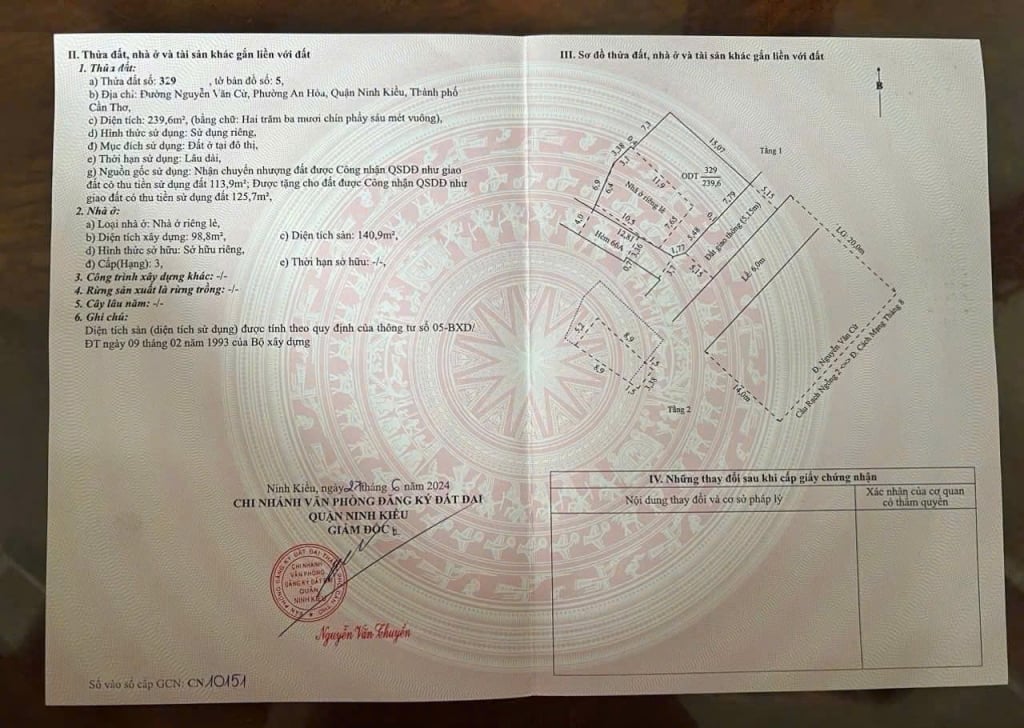 II. Thửa đất, nhà ở và tài sản khác gắn liền với đất
1. Thửa đất:
a) Thửa đất số: 329 , tờ bản đồ số: 5,
b) Địa chỉ: Đường Nguyễn Văn Cừ, Phường An Hòa, Quận Ninh Kiều, Thành phố
Cần Thơ,
c) Diện tích: 239,6m², (bằng chữ: Hai trăm ba mươi chín phẩy sáu mét vuông),
d) Hình thức sử dụng: Sử dụng riêng,
đ) Mục đích sử dụng: Đất ở tại đô thị,
e) Thời hạn sử dụng: Lâu dài,
g) Nguồn gốc sử dụng: Nhận chuyển nhượng đất được Công nhận QSDĐ như giao
đất có thu tiền sử dụng đất 113,9m²; Được tặng cho đất được Công nhận QSDĐ như
giao đất có thu tiền sử dụng đất 125,7m²,
2. Nhà ở:
a) Loại nhà ở: Nhà ở riêng lẻ,
b) Diện tích xây dựng: 98,8m², c) Diện tích sàn: 140,9m²,
d) Hình thức sở hữu: Sở hữu riêng,
đ) Cấp(Hạng): 3, e) Thời hạn sở hữu: -/-,
3. Công trình xây dựng khác: -/-
4. Rừng sản xuất là rừng trồng: -/-
5. Cây lâu năm: -/-
6. Ghi chú:
Diện tích sàn (diện tích sử dụng) được tính theo quy định của thông tư số 05-BXD/
ĐT ngày 09 tháng 02 năm 1993 của Bộ xây dựng
Ninh Kiều, ngày 27 tháng 6 năm 2024
CHI NHÁNH VĂN PHÒNG ĐĂNG KÝ ĐẤT ĐAI
QUẬN NINH KIỀU
GIÁM ĐỐC
CHI NHÁNH
VĂN PHÒNG
ĐĂNG KÝ ĐẤT
QUẬN
NINH KIỀU
Nguyễn Văn Thuyền
Số vào sổ cấp GCN: CN10151
III. Sơ đồ thửa đất, nhà ở và tài sản khác gắn liền với đất
B
7,3
15,07
Tầng 1
3,38
3,1
ODT 329
239,6
11,9
Nhà ở riêng lẻ
6,9
6,4
7,79
5,15
10,5
7,65
0,6
4,0
12,81
5,48
Đất giao thông (5,15m)
LG: 20,0m
Hẻm 66A
3,36
1,77
0,77
3,7
5,15
Lề: 6,0m
5,2
8,9
8,9
1,5
3,38
1,5
Tầng 2
14,0m
Đ. Nguyễn Văn Cừ
Cầu Rạch Ngỗng 2 <=> Đ. Cách Mạng Tháng 8
IV. Những thay đổi sau khi cấp giấy chứng nhận
Nội dung thay đổi và cơ sở pháp lý
Xác nhận của cơ quan
có thẩm quyền